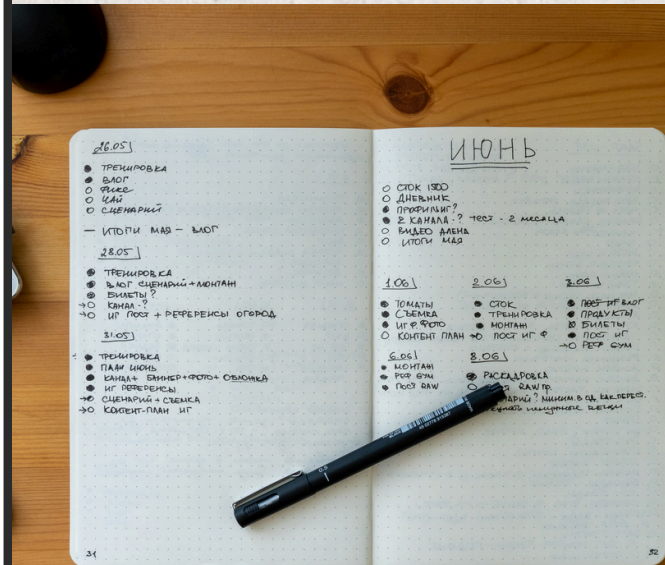 26.05
ТРЕНИРОВКА
ВЛОГ
ЧАЙ
СЦЕНАРИЙ
— ИТОГИ МАЯ – ВЛОГ
28.05
ТРЕНИРОВКА
ВЛОГ СЦЕНАРИЙ + МОНТАЖ
БИЛЕТЫ?
→ КАНАЛ -?
→ ИГ ПОСТ + РЕФЕРЕНСЫ ОГОРОД
31.05
ТРЕНИРОВКА
ПЛАН ИЮНЬ
КАНАЛ + БАННЕР + ФОТО + ОБЛОЖКА
ИГ РЕФЕРЕНСЫ
→ СЦЕНАРИЙ + СЪЕМКА
→ КОНТЕНТ-ПЛАН ИГ
31
ИЮНЬ
СТОК 1500
ДНЕВНИК
ПРОФИЛЬ ИГ?
2 КАНАЛА -? ТЕСТ - 2 МЕСЯЦА
ВИДЕО АЛЕНА
ИТОГИ МАЯ
1.06
ТОМАТЫ
СЪЕМКА
ИГ Ф. ФОТО
КОНТЕНТ ПЛАН
2.06
СТОК
ТРЕНИРОВКА
МОНТАЖ
→ ПОСТ ИГ Ф
3.06
ПОСТ ИГ ВЛОГ
ПРОДУКТЫ
БИЛЕТЫ
ПОСТ ИГ
→ РЕФ GYM
6.06
МОНТАЖ
РЕФ GYM
ПОСТ RAW
8.06
РАСКАДРОВКА
RAW ПР.
МИНИМ. В ОД. КАК ПЕРЕС.
ВЕЩИ
0.5
32